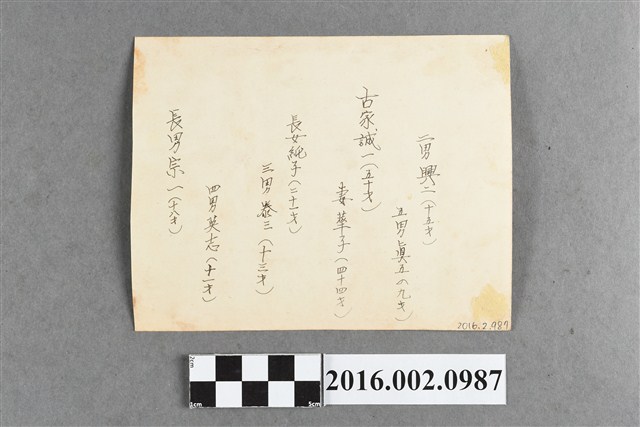 二男興二(十五才)
五男眞五(九才)
古家誠一(五十才)
妻華子(四十四才)
長女純子(二十一才)
三男泰三(十三才)
四男英志(十一才)
長男宗一(十八才)
2016.2.987
2cm
1cm
5cm
2016.002.0987